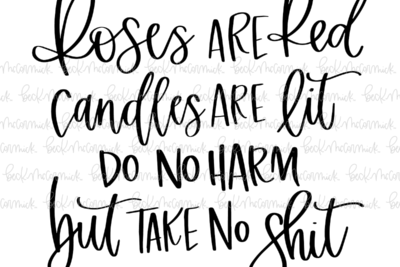 Roses ARE Red
candles ARE lit
DO NO HARM
but TAKE NO shit